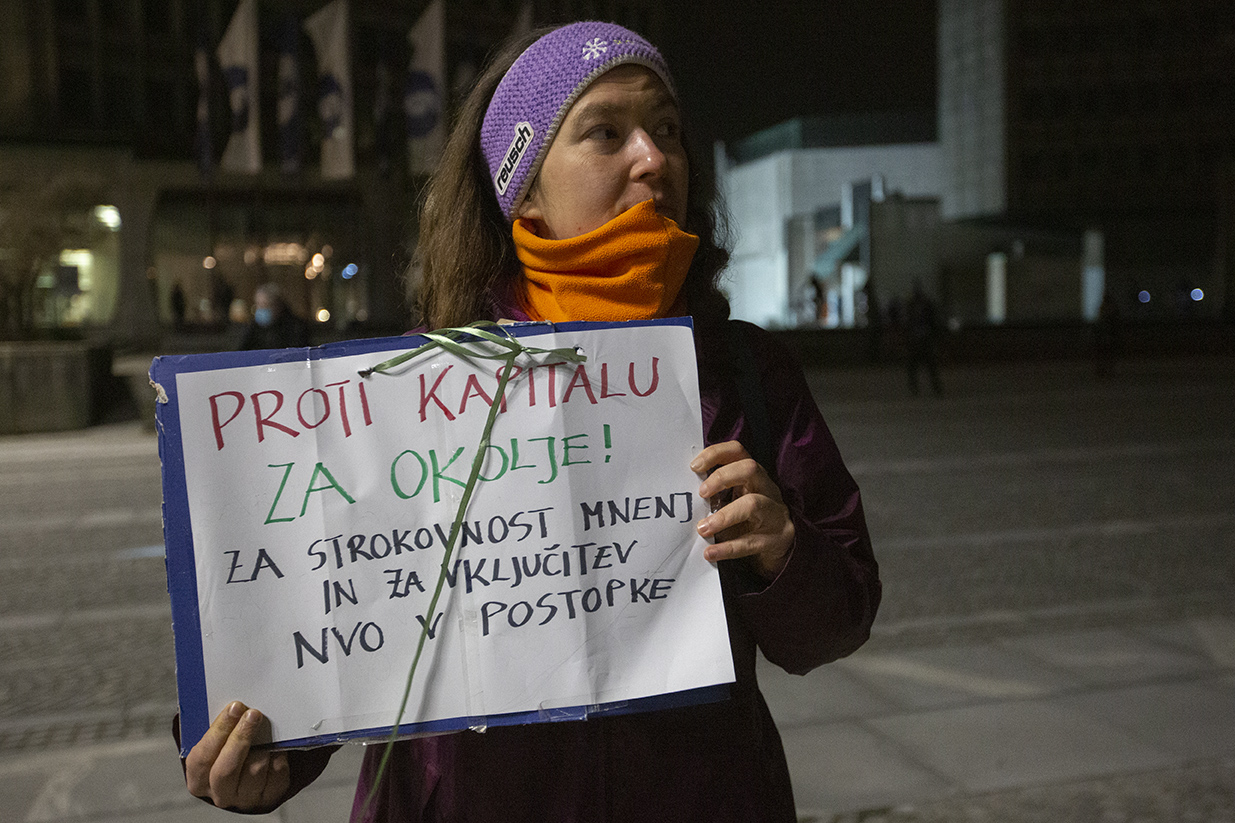 reusch
PROTI KAPITALU
ZA OKOLJE!
ZA STROKOVNOST MNENJ
IN ZA VKLJUČITEV
NVO V POSTOPKE